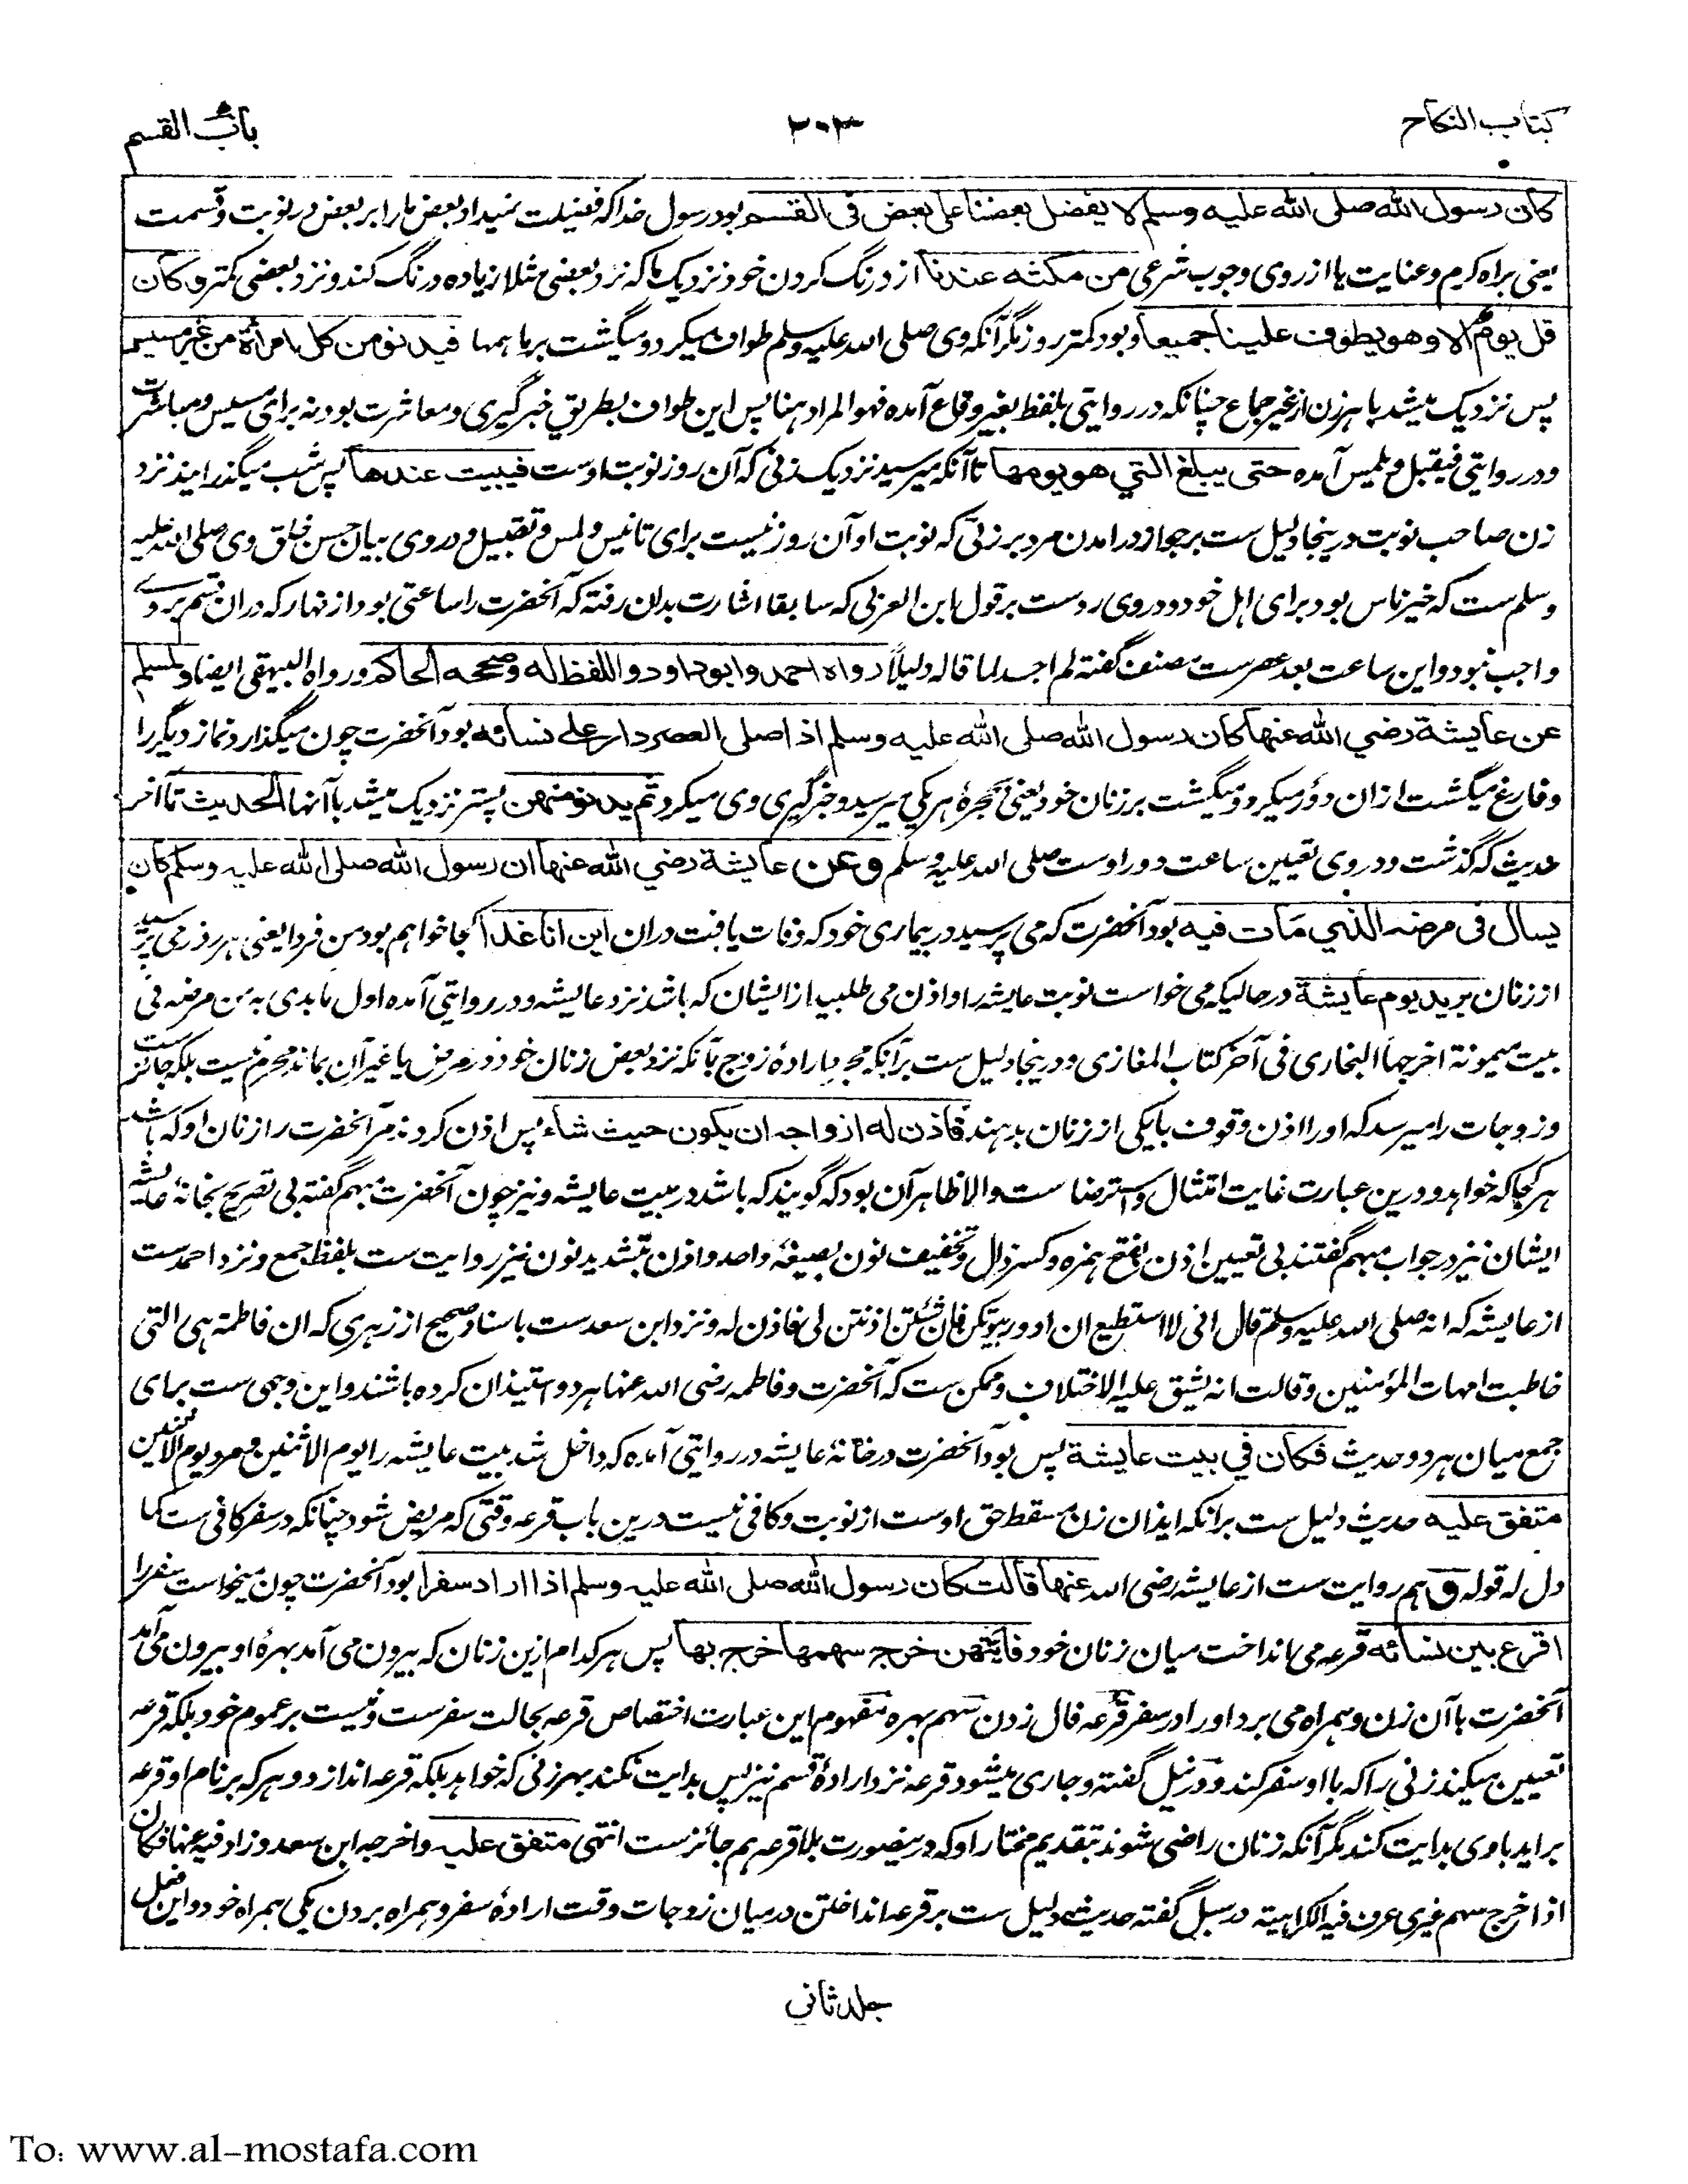 كتاب النكاح
٢٠٣
باب القسم
كان رسول الله صلى الله عليه وسلم لا يفضل بعضنا على بعض فى القسم بود رسول خدا كه فضيلت نميداد بعض ما را بر بعض در نوبت و قسمت
يعنى براه كرم و عنايت يا از روى وجوب شرعى من مكثه عندنا از درنگ كردن خود نزديك ما كه نزد بعضى مثلا زياده درنگ كند و نزد بعضى كمتر و كان
قل يوم الا وهو يطوف علينا جميعا و بود كمتر روز مگر آنكه وى صلى الله عليه وسلم طواف ميكرد و ميگشت بر ما همها فيدنو من كل امرأة من غير مسيس
پس نزديك ميشد با هر زن از غير جماع چنانكه در روايتى بلفظ بغير وقاع آمده فهو المراد هنا پس اين طواف بطريق خبرگيرى و معاشرت بود نه براى مسيس و مباشرت
و در روايتى فيقبل و يلمس آمده حتى يبلغ التي هو يومها تا آنكه ميرسيد نزديك زنى كه آن روز نوبت اوست فيبيت عندها پس شب ميگذرانيد نزد
زن صاحب نوبت در ينجا دليل ست بر جواز درامدن مرد بر زنى كه نوبت او آن روز نيست براى تانيس و لمس و تقبيل و در وى بيان حسن خلق وى صلى الله عليه
وسلم ست كه خير ناس بود براى اهل خود و در وى رد ست بر قول ابن العربى كه سابقا اشارت بدان رفته كه آنحضرت را ساعتى بود از نهار كه دران قسم بر وے
واجب نبود و اين ساعت بعد عصر ست مصنف گفته لم اجد لما قاله دليلاً رواه احمد وابو داود واللفظ له وصححه الحاكم و رواه البيهقى ايضا ولمسلم
عن عايشة رضي الله عنها كان رسول الله صلى الله عليه وسلم اذا صلى العصر دار على نسائه بود آنحضرت چون ميگذارد نماز ديگر را
و فارغ ميگشت ازان دور ميكرد و ميگشت بر زنان خود يعنى بحجرهٔ هر يكى ميرسيد و خبرگيرى وى ميكرد ثم يدنو منهن پستر نزديك ميشد با آنها الحديث تا آخر
حديث كه گذشت و در وى تعيين ساعت دور اوست صلى الله عليه وسلم وعن عايشة رضي الله عنها ان رسول الله صلى الله عليه وسلم كان
يسال فى مرضه الذي مات فيه بود آنحضرت كه مى پرسيد در بيمارى خود كه وفات يافت دران اين انا غدا كجا خواهم بود من فردا يعنى هر روز مى پرسيد
از زنان يريد يوم عايشة در حاليكه مى خواست نوبت عايشه را و اذن مى طلبيد از ايشان كه باشد نزد عايشه و در روايتى آمده اول ما بدى به من مرضه فى
بيت ميمونة اخرجها البخارى فى آخر كتاب المغازى و در ينجا دليل ست برآنكه مجرد ارادهٔ زوج بآنكه نزد بعض زنان خود در مرض يا غير آن بماند محرم نيست بلكه جائز ست
و زوجات را ميرسد كه او را اذن وقوف با يكى از زنان بدهند فاذن له ازواجه ان يكون حيث شاء پس اذن كردند مر آنحضرت را زنان او كه باشد
هر كجا كه خواهد و درين عبارت غايت امتثال و استرضا ست و الا ظاهر آن بود كه گويند كه باشد در بيت عايشه و نيز چون آنحضرت مبهم گفته بى تصريح بخانهٔ عايشه
ايشان نيز در جواب مبهم گفتند بى تعيين اذن بفتح همزه و كسر ذال و تخفيف نون بصيغهٔ واحد و اذن بتشديد نون نيز روايت ست بلفظ جمع و نزد احمد ست
از عايشه كه انه صلى الله عليه وسلم قال انى لا استطيع ان ادور بيوتكن فان شئتن اذنتن لى فاذن له و نزد ابن سعد ست باسناد صحيح از زهرى كه ان فاطمة هى التى
خاطبت امهات المؤمنين وقالت انه يشق عليه الاختلاف و ممكن ست كه آنحضرت و فاطمه رضى الله عنها هر دو استيذان كرده باشند و اين وجهى ست براى
جمع ميان هر دو حديث فكان في بيت عايشة پس بود آنحضرت در خانهٔ عايشه در روايتى آمده كه داخل شد بيت عايشه را يوم الاثنين و مرد يوم الاثنين
متفق عليه حديث دليل ست برانكه ايذان زن مسقط حق اوست از نوبت و كافى نيست درين باب قرعه وقتى كه مريض شود چنانكه در سفر كافى ست كما
دل له قوله و هم روايت ست از عايشه رضى الله عنها قالت كان رسول الله صلى الله عليه وسلم اذا اراد سفرا بود آنحضرت چون ميخواست سفر را
اقرع بين نسائه قرعه مى انداخت ميان زنان خود فايتهن خرج سهمها خرج بها پس هر كدام ازين زنان كه بيرون مى آمد بهرهٔ او بيرون مى آمد
آنحضرت با آن زن و همراه مى برد او را در سفر قرعه فال زدن سهم بهره مفهوم اين عبارت اختصاص قرعه بحالت سفر ست و نيست بر عموم خود بلكه قرعه
تعيين ميكند زنى را كه با او سفر كند و در نيل گفته و جارى ميشود قرعه نزد ارادهٔ قسم نيز پس بدايت نكند بهر زنى كه خواهد بلكه قرعه اندازد و هر كه بر نام او قرعه
برايد با وى بدايت كند مگر آنكه زنان راضى شوند بتقديم مختار او كه درينصورت بلا قرعه هم جائز ست انتهى متفق عليه و اخرجه ابن سعد و زاد فيه عنها فكان
اذا خرج سهم غيرى عرف فيه الكراهية در سبل گفته حديث دليل ست بر قرعه انداختن درميان زوجات وقت ارادهٔ سفر و همراه بردن يكى همراه خود و اين فعل
جلد ثاني
To: www.al-mostafa.com